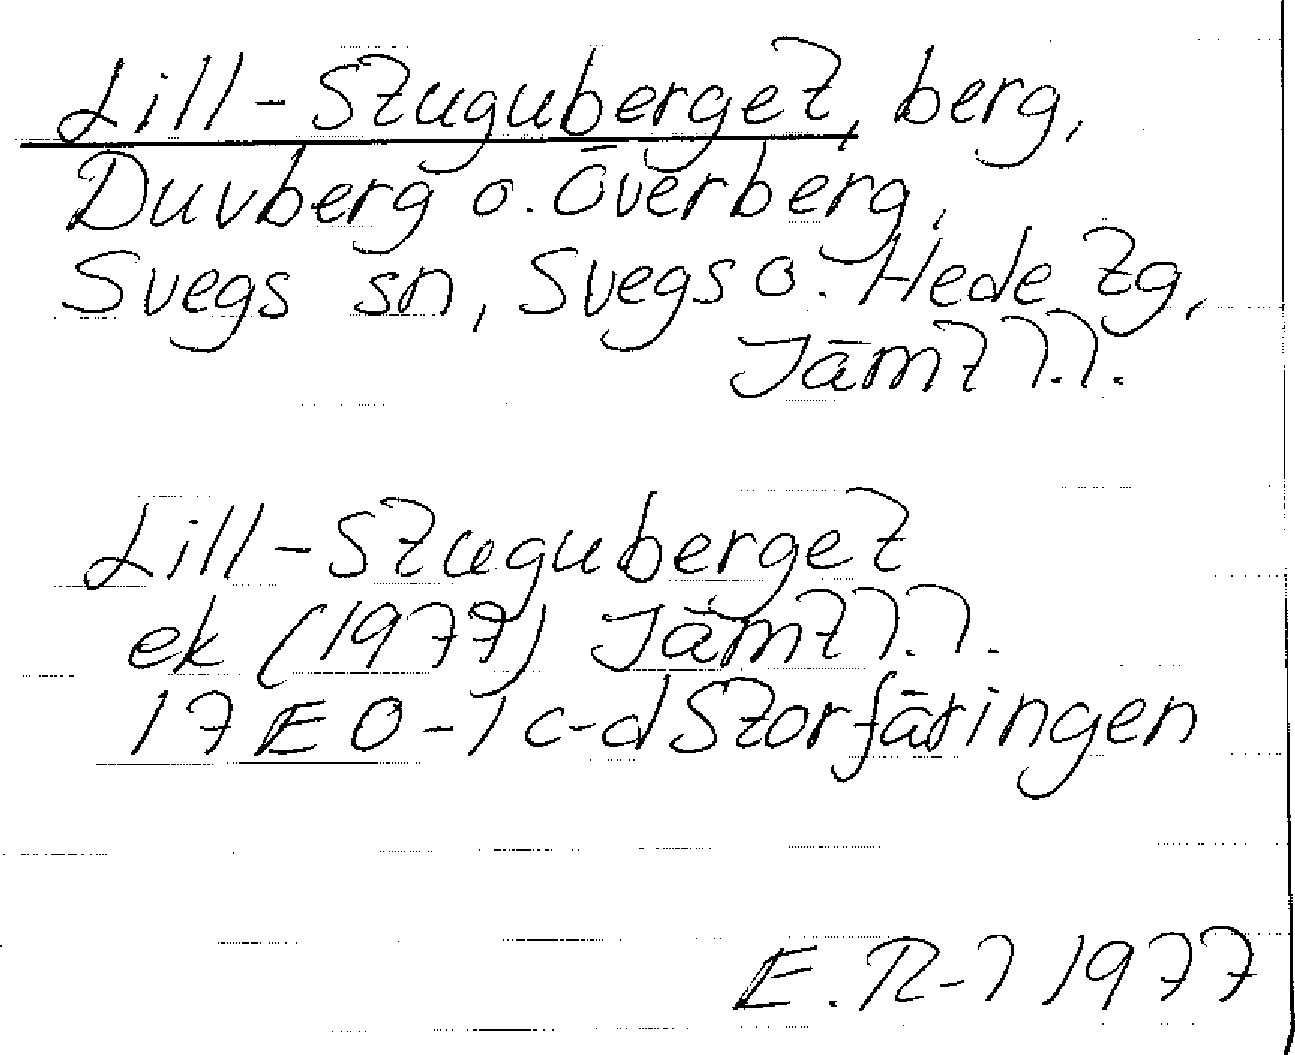 Lill-Stuguberget, berg,
Duvberg o. Överberg,
Svegs sn, Svegs o. Hede tg,
Jämtl.l.
Lill-Stuguberget
ek (1977) Jämtl.l.
17E 0-1 c-d Storfäringen
E. R-l 1977